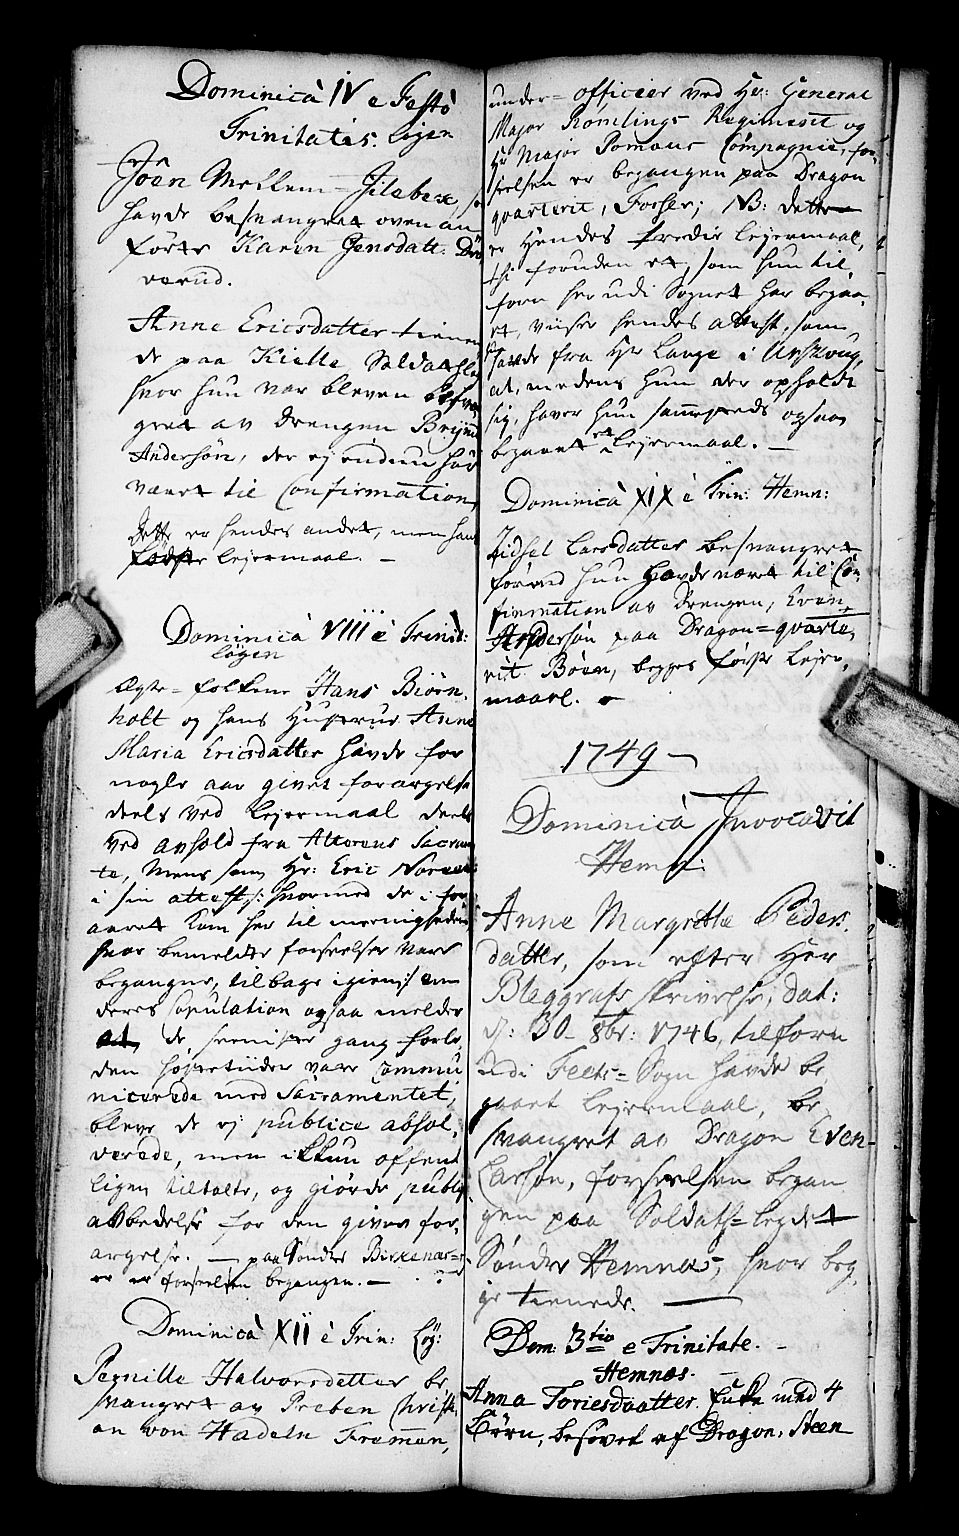 Dominicà IV e Festô
Trinitatis: Løgen
Joen Mellem-Jilebeck, so
hafde besvangret ovenan
førte Karen Jensdatt: Drö
verud.
Anne Ericsdatter tienen
de paa Kielle Soldatslæ
hvor hun var bleven besvan
gret av drengen Brynil
Andersøn, der ej endnu har
været til Confirmation,
dette er hendes andet, men hans
første Lejermaal. —
Dominicà VIII è Trinit:
Løgen
Ægte-folkene Hans Biørn-
holt og hans Hustrue Anne
Maria Ericsdatter hafde for
nogle aar givet forargelse
deels ved Lejermaal deels
ved avhold fra Alterens Sacramen
te, Mens som Hr: Eric
i sin attest /: hvormed de i for
aaret kom her til menigheden
hvor bemelte forseelser vare
begangne, tilbage igien :/ om
deres Copulation ogsaa melder
at, de seeniste gang forle
den høstetiider vare Commu
nicerede med Sacramentet,
bleve de ej publice absol,
verede, men ikkun offent
ligen tiltalte, og giørde publiq
avbedelse for den given for,
argelse. — paa Sønder Birkenæs
er forseelsen begangen. —
Dominicà XII è Trin: Løg:
Pernille Halvorsdatter be
svangret av Preben Christi
an von Hadeln Fremmen,
under-officeer ved Hr: General
Major Romlings Regiment og
Hr Major Pomans Compagnie, for-
seelsen er begangen paa Dragon
qvarterit, Fosser; NB: dette
er Hendes tredie lejermaal,
thi foruden et, som hun til,
forn her udi Sognet har begaa,
et, viiser hendes attest, som
havde fra Hr Lange i Urskoug,
at, medens hun der opholdt
sig, haver hun sammesteds ogsaa
begaaet et Lejermaal. —
Dominicà XIX è Trin: Hemn:
Zidsel Larsdatter besvangret
førend hun havde været til Con-
firmation av drengen, Even
Andersøn paa Dragon-qvarte,
rit Bøen, begges første Lejer,
maael.
1749 —
Dominicà Invocavit
Hemn:
Anne Margrette Peders
datter, som efter Herr
Bleggrafs skrivelse, dat:
d: 30 8br: 1746, tilforn
udi Feets-Sogn havde be,
gaaet Lejermaal, be,
svangret av Dragon Even
Larsøn, forseelsen began
gen paa Soldats-legdet
Sønder Hemnes, hvor beg,
ge tienede. —
Dom: 3tio e Trinitate. —
Hemnæs.
Anna Toriesdaatter. Enke med 4
Børn, besovet af Dragon, Steen